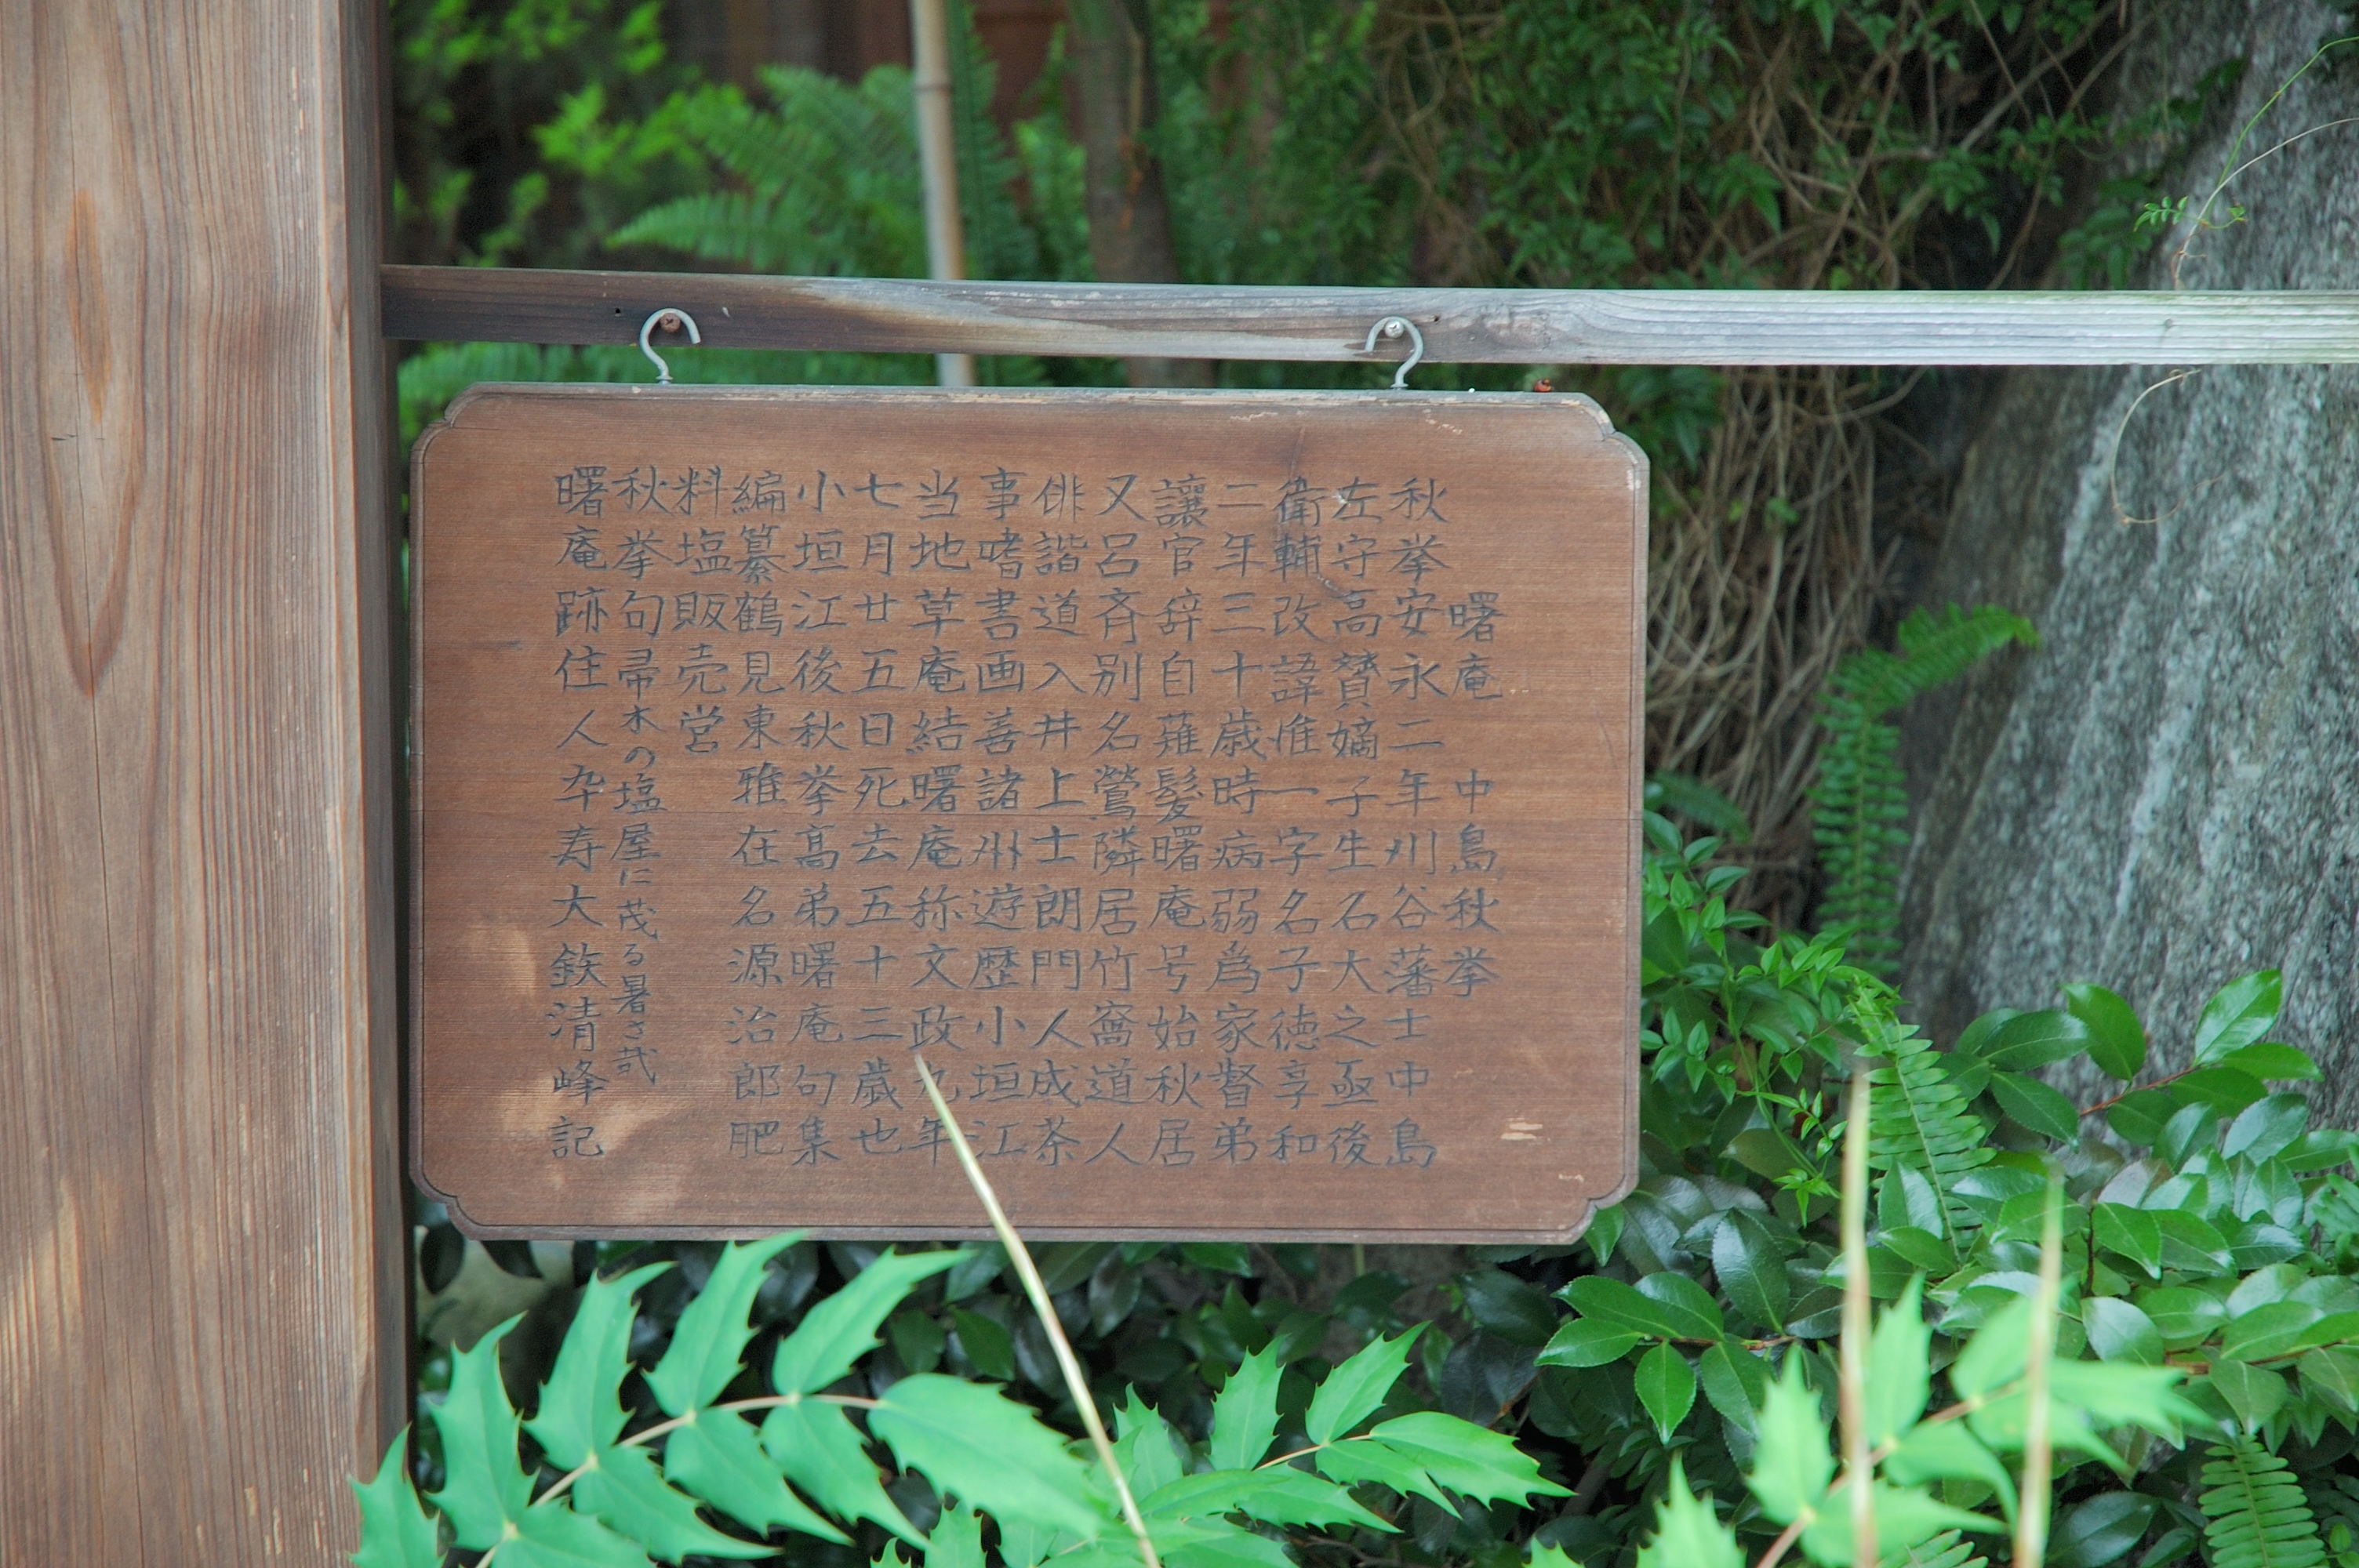 曙庵　中島秋挙
秋挙安永二年刈谷藩士中島
左守高賛嫡子生石大之亟後
衛輔改諱惟一字名子徳享和
二年三十歳時病弱爲家督弟
讓官辞自薙髪曙庵号始秋居
又呂斉別名鶯隣居竹窩道人
俳諧道入井上士朗門人成茶
事嗜書画善諸州遊歴小垣江
当地草庵結曙庵称文政九年
七月廿五日死去五十三歳也
小垣江後秋挙高弟曙庵句集
編纂鶴見東雅在名源治郎肥
料塩販売営
秋挙句帚木の塩屋に茂る暑さ哉
曙庵跡住人卆寿大鉃清峰記